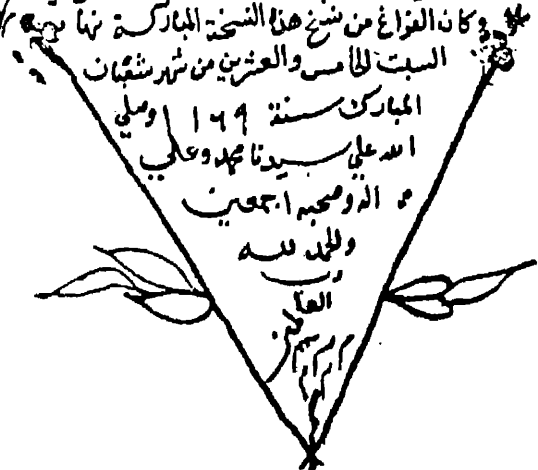 وكان الفراغ من نسخ هذه النسخة المباركة نهار
السبت الخامس والعشرين من شهر شعبان
المبارك سنة ١١٦٩ وصلي
الله علي سيدنا محمد وعلي
اله وصحبه اجمعين
والحمد لله
رب
العا
لمين